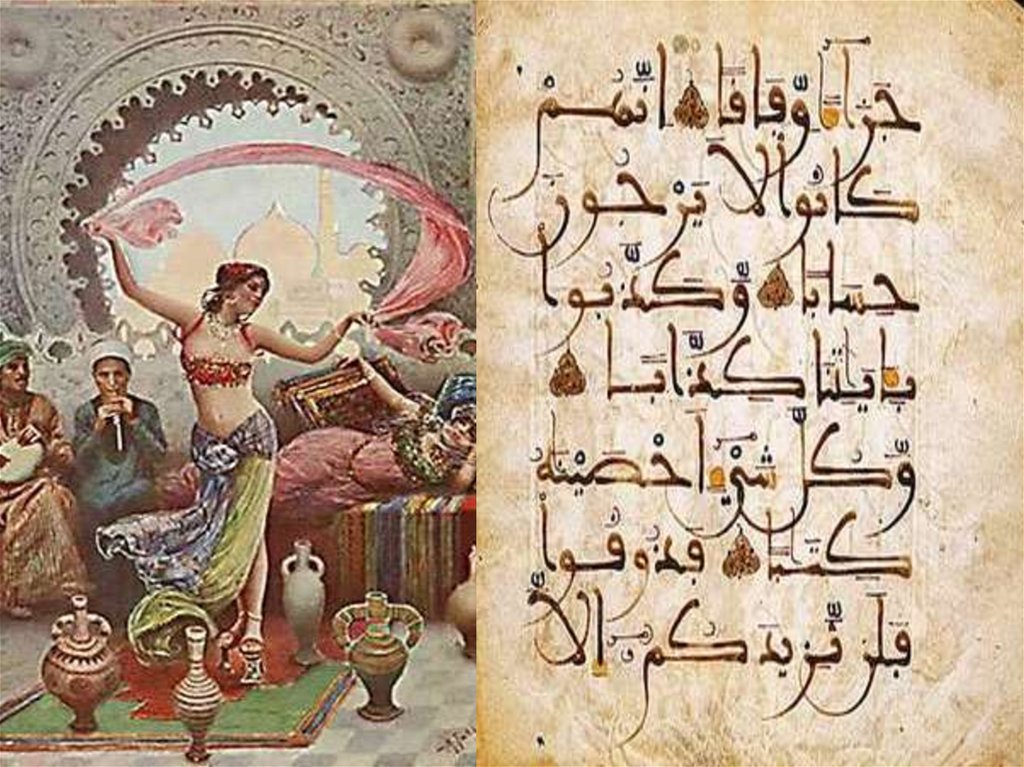 جَزَآءً وِّفَاقًا انَّهُمْ
كَانُوا لَا يَرْجُونَ
حِسَابًا وَّكَذَّبُوا
بِايٰتِنَا كِذَّابًا
وَّكُلَّ شَيْءٍ احْصَيْنٰهُ
كِتٰبًا فَذُوقُوا
فَلَن نَّزِيدَكُمْ الَّا